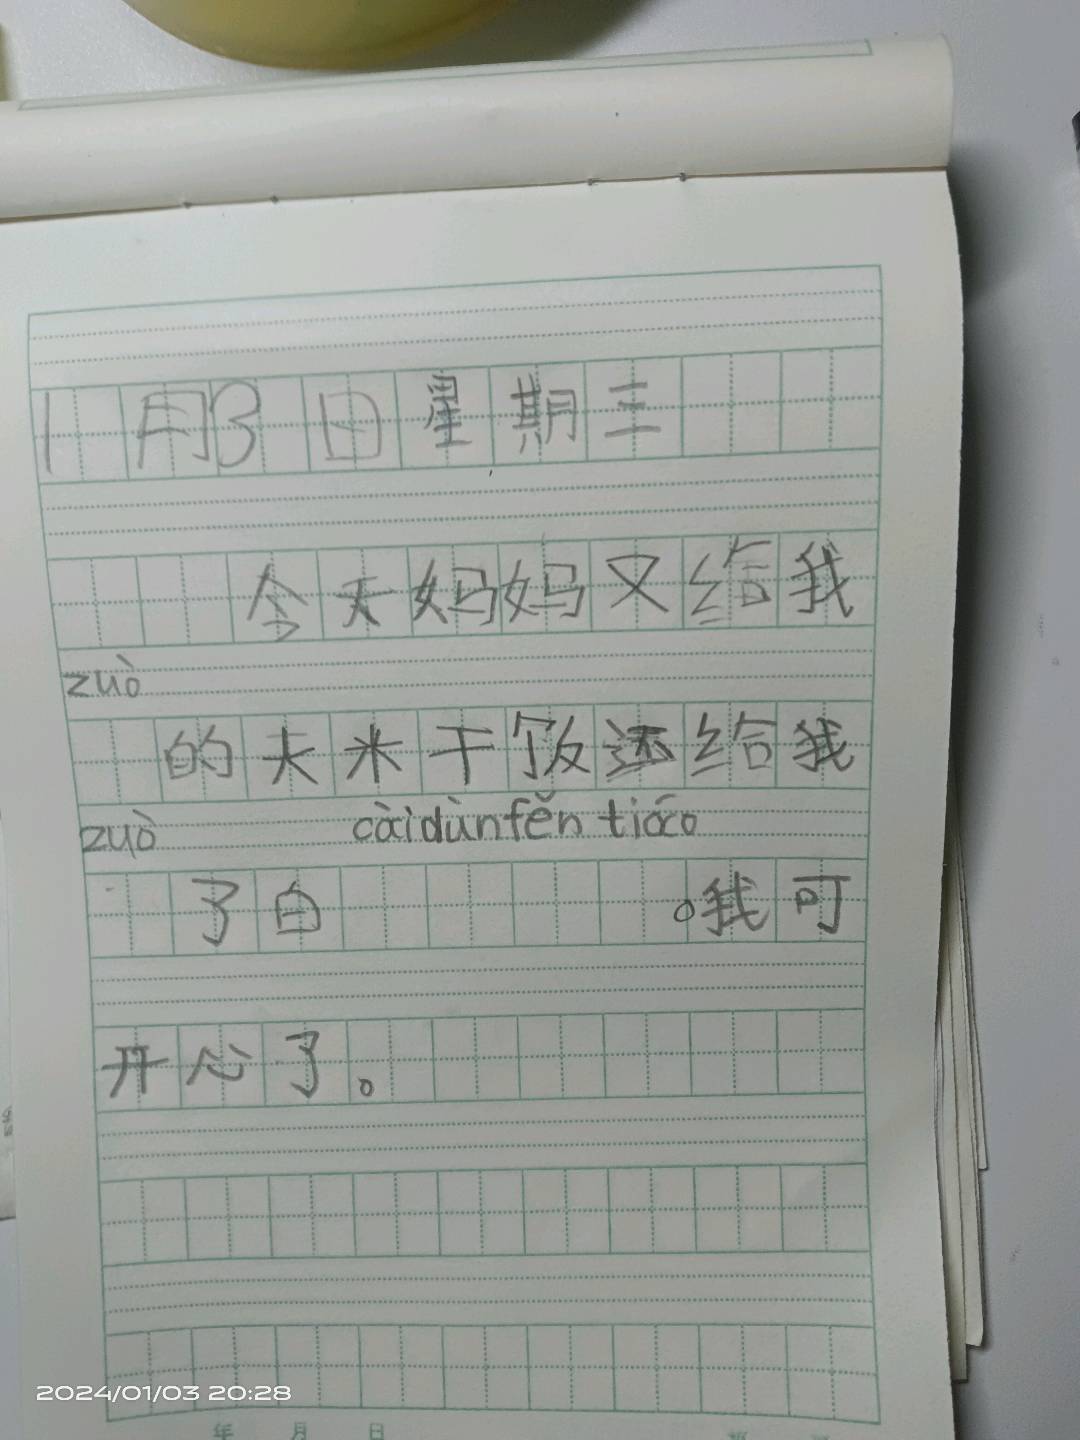 1月3日星期三
今天妈妈又给我
zuò
的大米干饭还给我
zuò càidùnfěn tiáo
了白 。我可
开心了。
2024/01/03 20:28
年 月 日